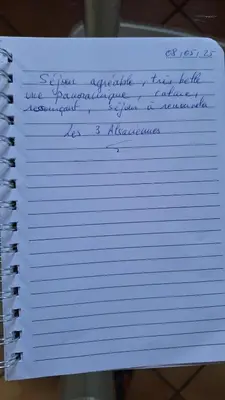 08.05.25
Séjour agréable, très belle
vue panoramique, calme,
ressourçant, séjour à renouveler
Les 3 Alsaciennes